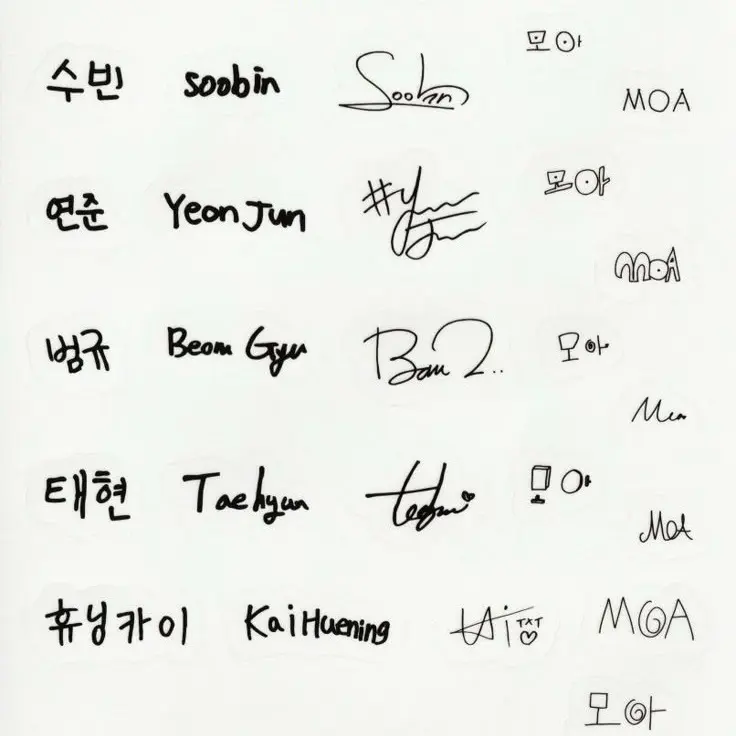 수빈 soobin Soobin 모아
MOA
연준 YeonJun #Yeon Jun 모아
MOA
범규 BeomGyu Bam 모아
Moa
태현 Taehyun taehyun 모아
MOA
휴닝카이 KaiHuening Kai TXT MOA
모아